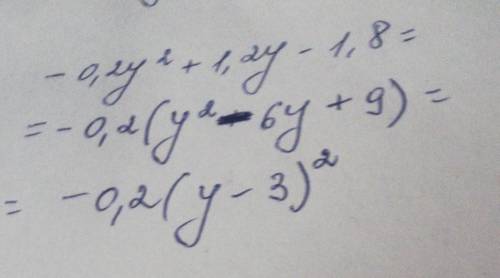 -0,2y² + 1,2y - 1,8 =
= -0,2(y² - 6y + 9) =
= -0,2(y - 3)²